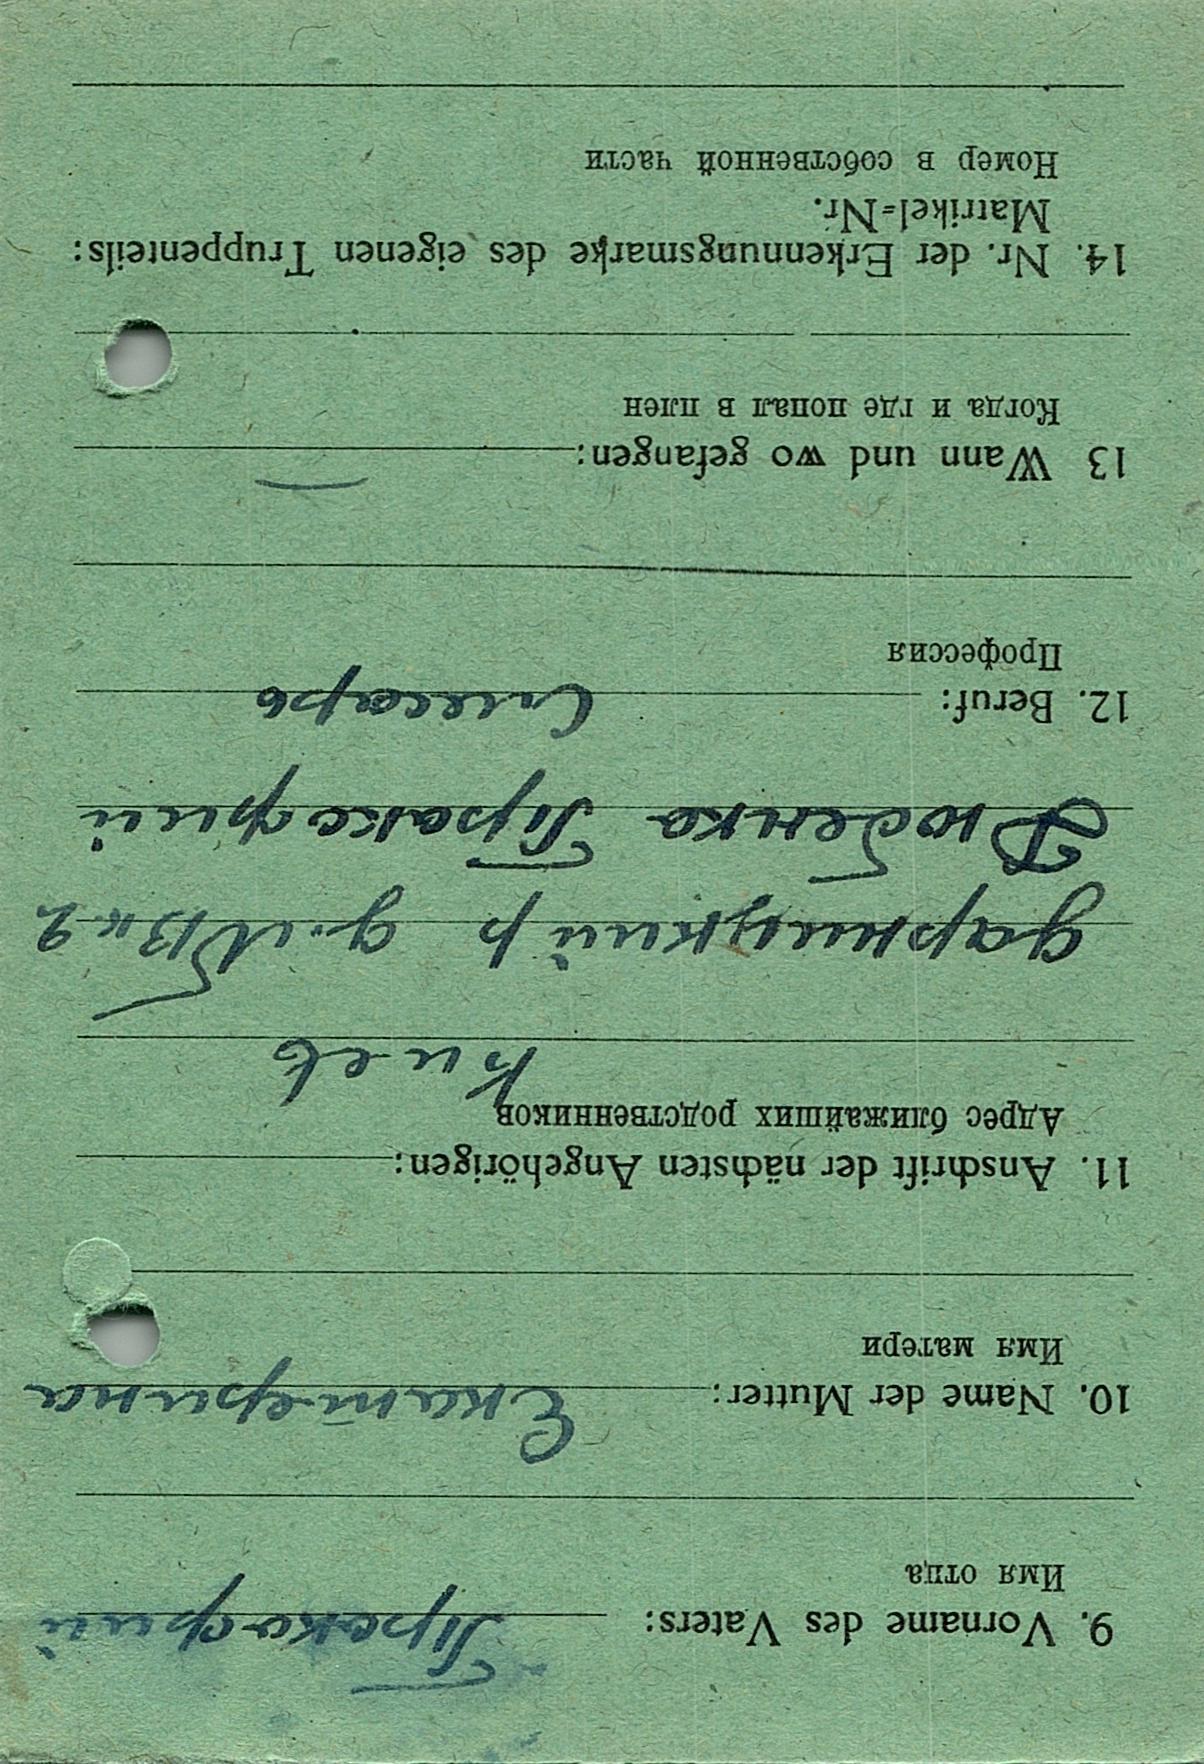 9. Vorname des Vaters: Пракофий
Имя отца
10. Name der Mutter: Екатерина
Имя матери
11. Anschrift der nächsten Angehörigen:
Адрес ближайших родственников
Киев
дарницкий р
Дюбенко Пракофий
12. Beruf: Слесарь
Профессия
13 Wann und wo gefangen: —
Когда и где попал в плен
14. Nr. der Erkennungsmarke des eigenen Truppenteils:
Matrikel=Nr.
Номер в собственной части